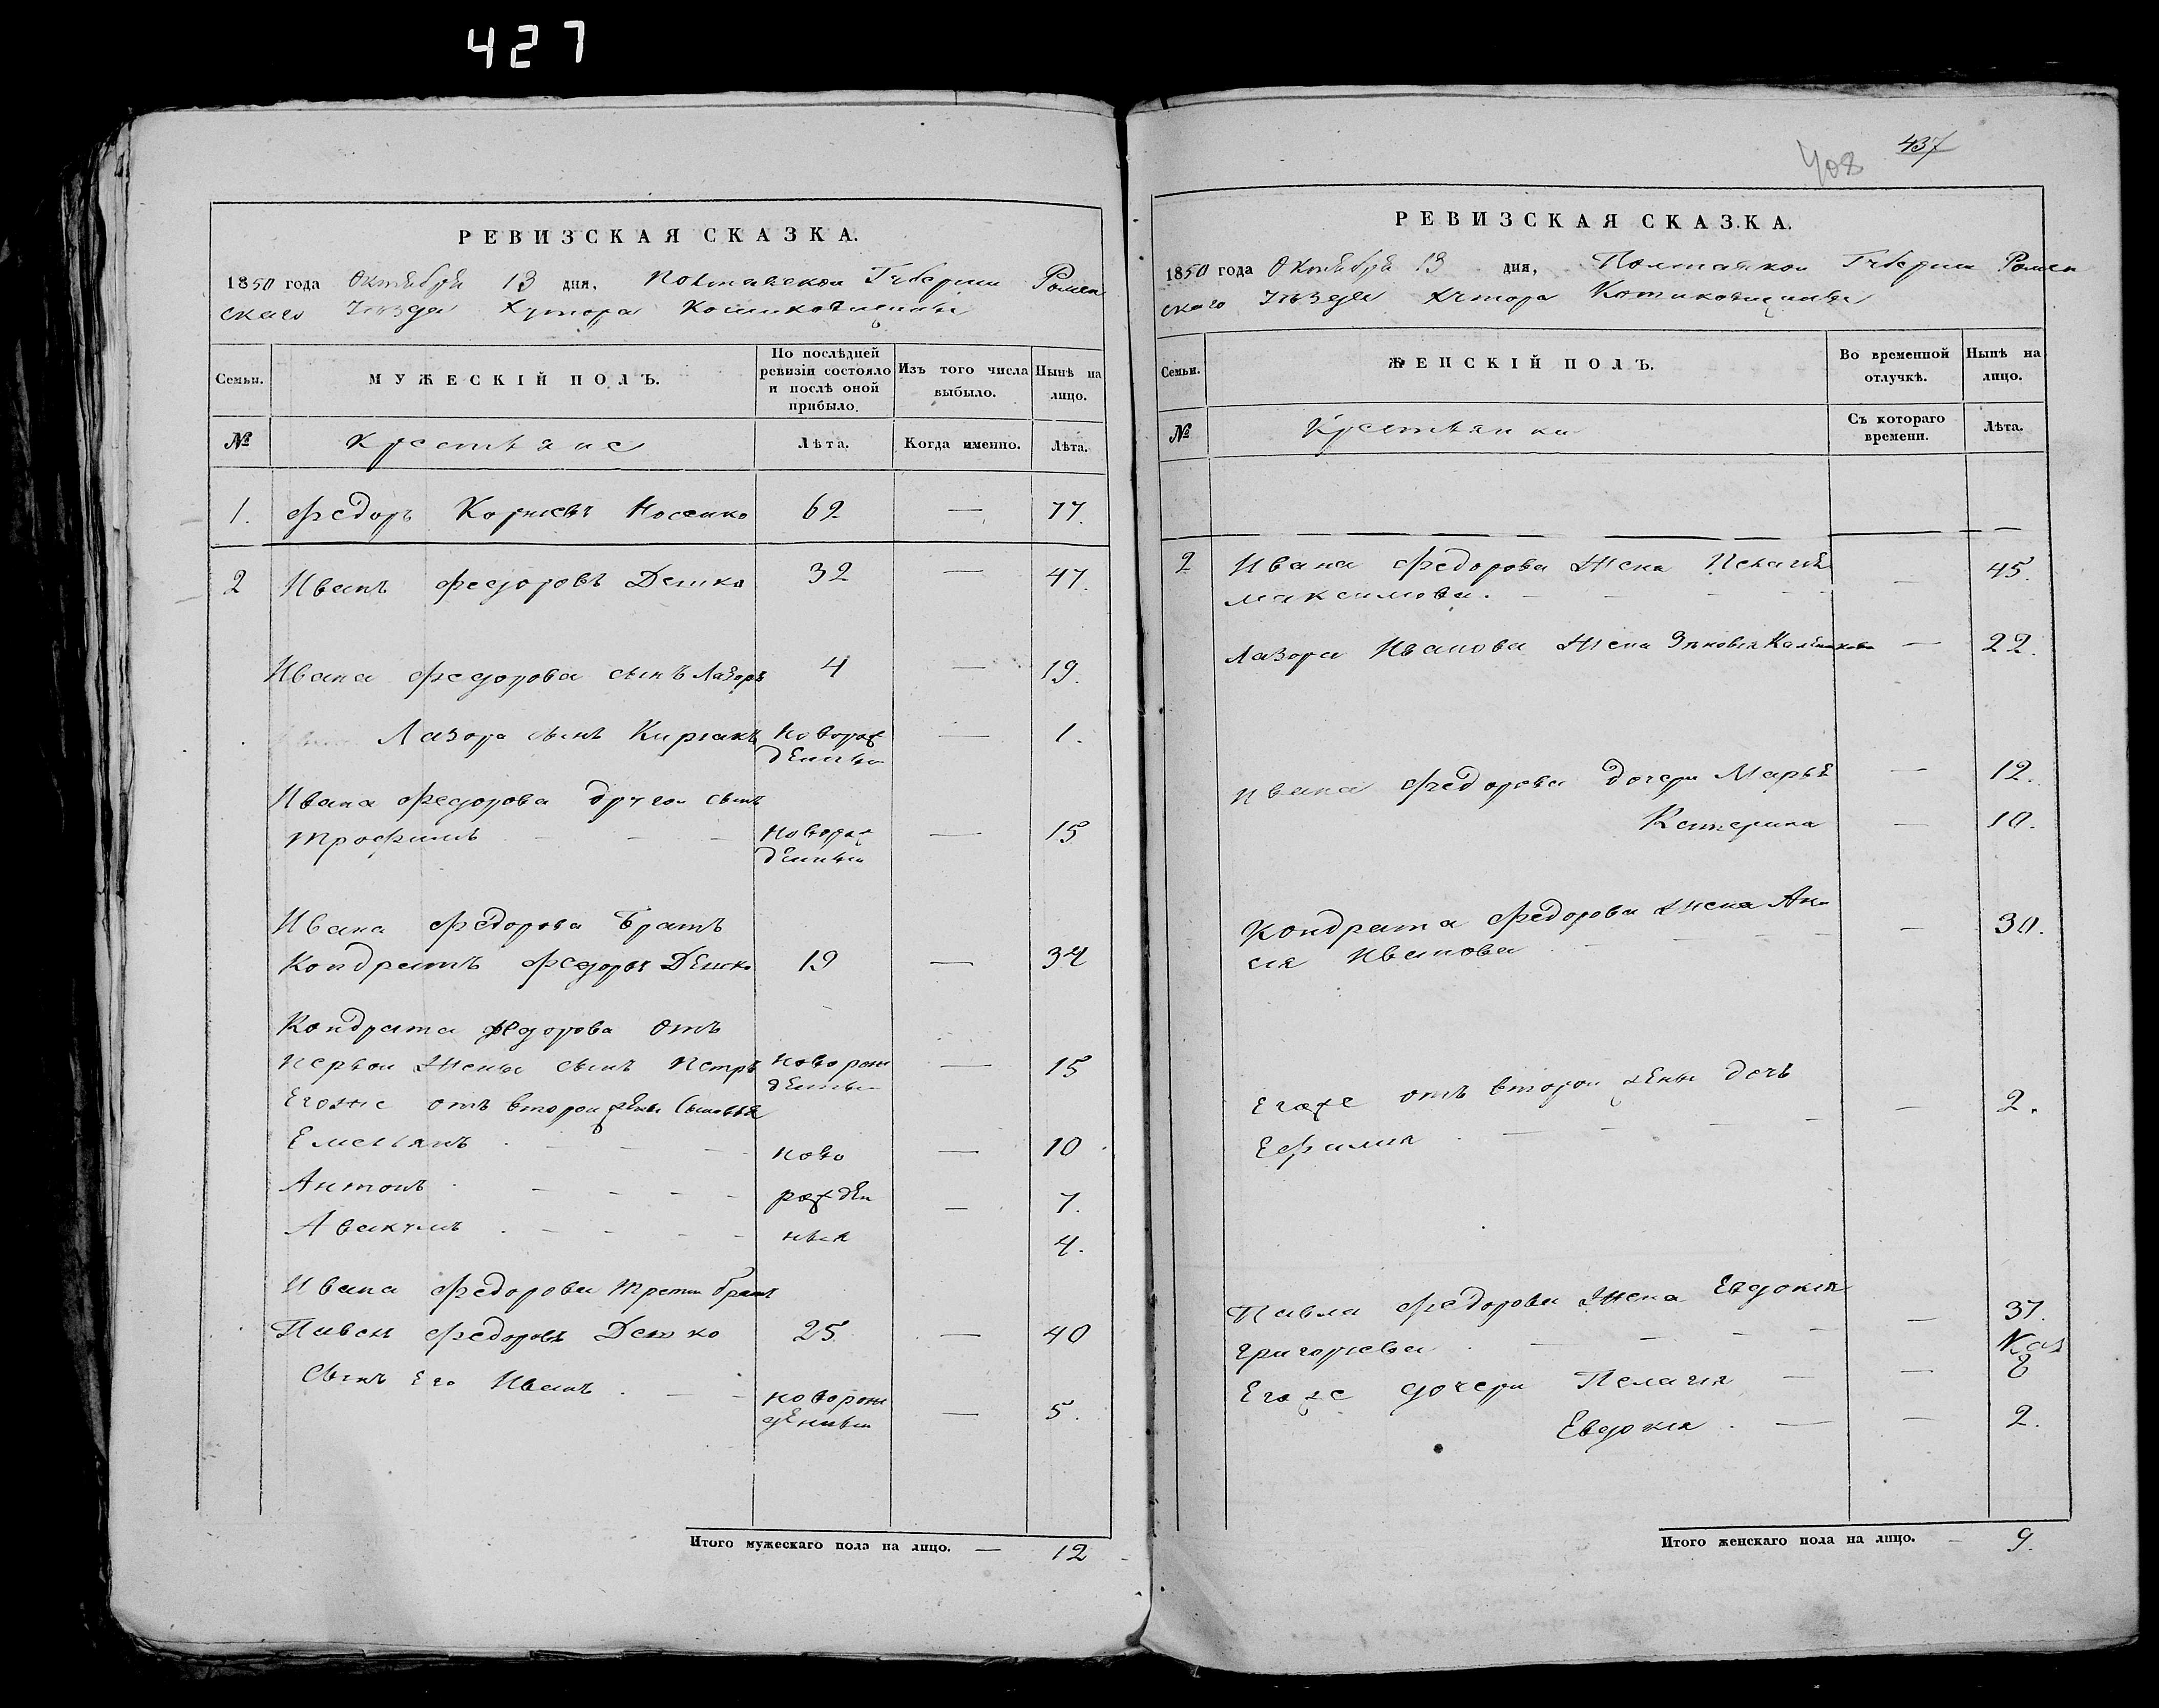 427
РЕВИЗСКАЯ СКАЗКА.
1850 года Октября 13 дня, Полтавской Губернии Ромен
скаго Уѣзда Хутора Котиковщины
Семьи.
МУЖЕСКІЙ ПОЛЪ.
По послѣдней ревизіи состояло и послѣ оной прибыло.
Изъ того числа выбыло.
Нынѣ на лицо.
№ Крестьяне Лѣта. Когда именно. Лѣта.
1. Федоръ Корнѣевъ Носенко 62 — 77.
2 Иванъ Федоровъ Демко 32 — 47.
Ивана Федорова сынъ Лазорь 4 — 19.
Лазора сынъ Кирьякъ Новорож — 1.
денный
Ивана Федорова другой сынъ
Трофимъ - - - Новорож — 15
денный
Ивана Федорова братъ
Кондратъ Федоровъ Демко 19 — 34
Кондрата Федорова отъ
первой жены сынъ Петръ новорож — 15
денный
Егоже отъ второй жены сыновья
Емельянъ - - - ново — 10
Антонъ - - - - рожден — 7.
Авакумъ - - - - ныя 4.
Ивана Федорова третий братъ
Павелъ Федоровъ Демко 25 — 40
Сынъ его Иванъ - - новорож
денный — 5.
Итого мужескаго пола на лицо. — 12
408 437
РЕВИЗСКАЯ СКАЗКА.
1850 года Октября 13 дня, Полтавской Губернии Ромен
скаго Уѣзда Хутора Котиковщины
Семьи.
ЖЕНСКІЙ ПОЛЪ.
Во временной отлучкѣ.
Нынѣ на лицо.
№ Крестьянки Съ котораго времени. Лѣта.
2 Ивана Федорова жена Пелагия — 45.
Максимова. - - - -
Лазора Иванова жена Зѣновия — 22.
Ивана Федорова дочери Марья — 12.
Катерина — 10.
Кондрата Федорова жена Ак — 30.
Ивановa - - - -
Егоже отъ второй жены дочь — 2.
Ефимия - - - -
Павла Федорова жена Евдокия — 37.
Григорьева - - - -
Егоже дочери Пелагия — — 8
Евдокия - — — 2.
Итого женскаго пола на лицо. — 9.